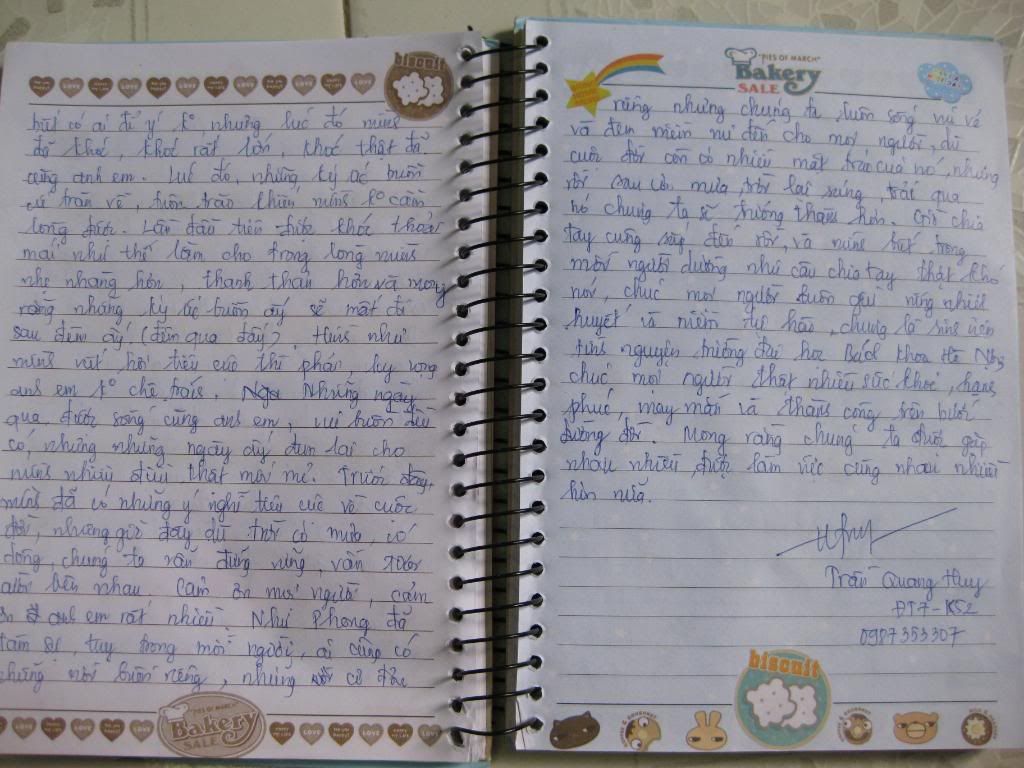 biscuit
LOVE LOVE LOVE
biết có ai để ý k°, nhưng lúc đó mình
đã khóc, khóc rất lớn, khóc thật đã
cùng anh em. Lúc đó, những ký ức buồn
cứ tràn về, tuôn trào khiến mình k° cầm
lòng được. Lần đầu tiên được khóc thoải
mái như thế làm cho trong lòng mình
nhẹ nhàng hơn, thanh thản hơn và mong
rằng những ký ức buồn ấy sẽ mất đi
sau đêm ấy! (đêm qua đấy). Hình như
mình viết hơi tiêu cực thì phải, hy vọng
anh em k° chê trách. Những ngày
qua, được sống cùng anh em, vui buồn đều
có, nhưng những ngày ấy đem lại cho
mình nhiều điều thật mới mẻ. Trước đây,
mình đã có những ý nghĩ tiêu cực về cuộc
đời, nhưng giờ đây dù trời có mưa, có
dông, chúng ta vẫn đứng vững, vẫn
bên nhau. Cảm ơn mọi người, cảm
ơn anh em rất nhiều. Như Phong đã
tâm sự, tuy trong mỗi người, ai cũng có
những nỗi buồn riêng, nhưng có
"PIES OF MARCH"
Bakery
SALE
LOVE LOVE LOVE
"PIES OF MARCH"
Bakery
SALE
riêng nhưng chúng ta luôn sống vui vẻ
và đem niềm vui đến cho mọi người, dù
cuộc đời còn có nhiều mặt trái của nó, nhưng
rồi sau cơn mưa, trời lại sáng, trải qua
nó chúng ta sẽ trưởng thành hơn. Giờ chia
tay cũng sắp đến rồi, và mình biết trong
mỗi người dường như câu chia tay thật khó
nói, chúc mọi người luôn giữ vững nhiệt
huyết và niềm tự hào, chúng là sinh viên
tình nguyện trường đại học Bách Khoa Hà Nội,
chúc mọi người thật nhiều sức khỏe, hạnh
phúc, may mắn và thành công trên bước
đường đời. Mong rằng chúng ta được gặp
nhau nhiều, được làm việc cùng nhau nhiều
hơn nữa.
Trần Quang Huy
ĐT7-K52
0987353307
biscuit